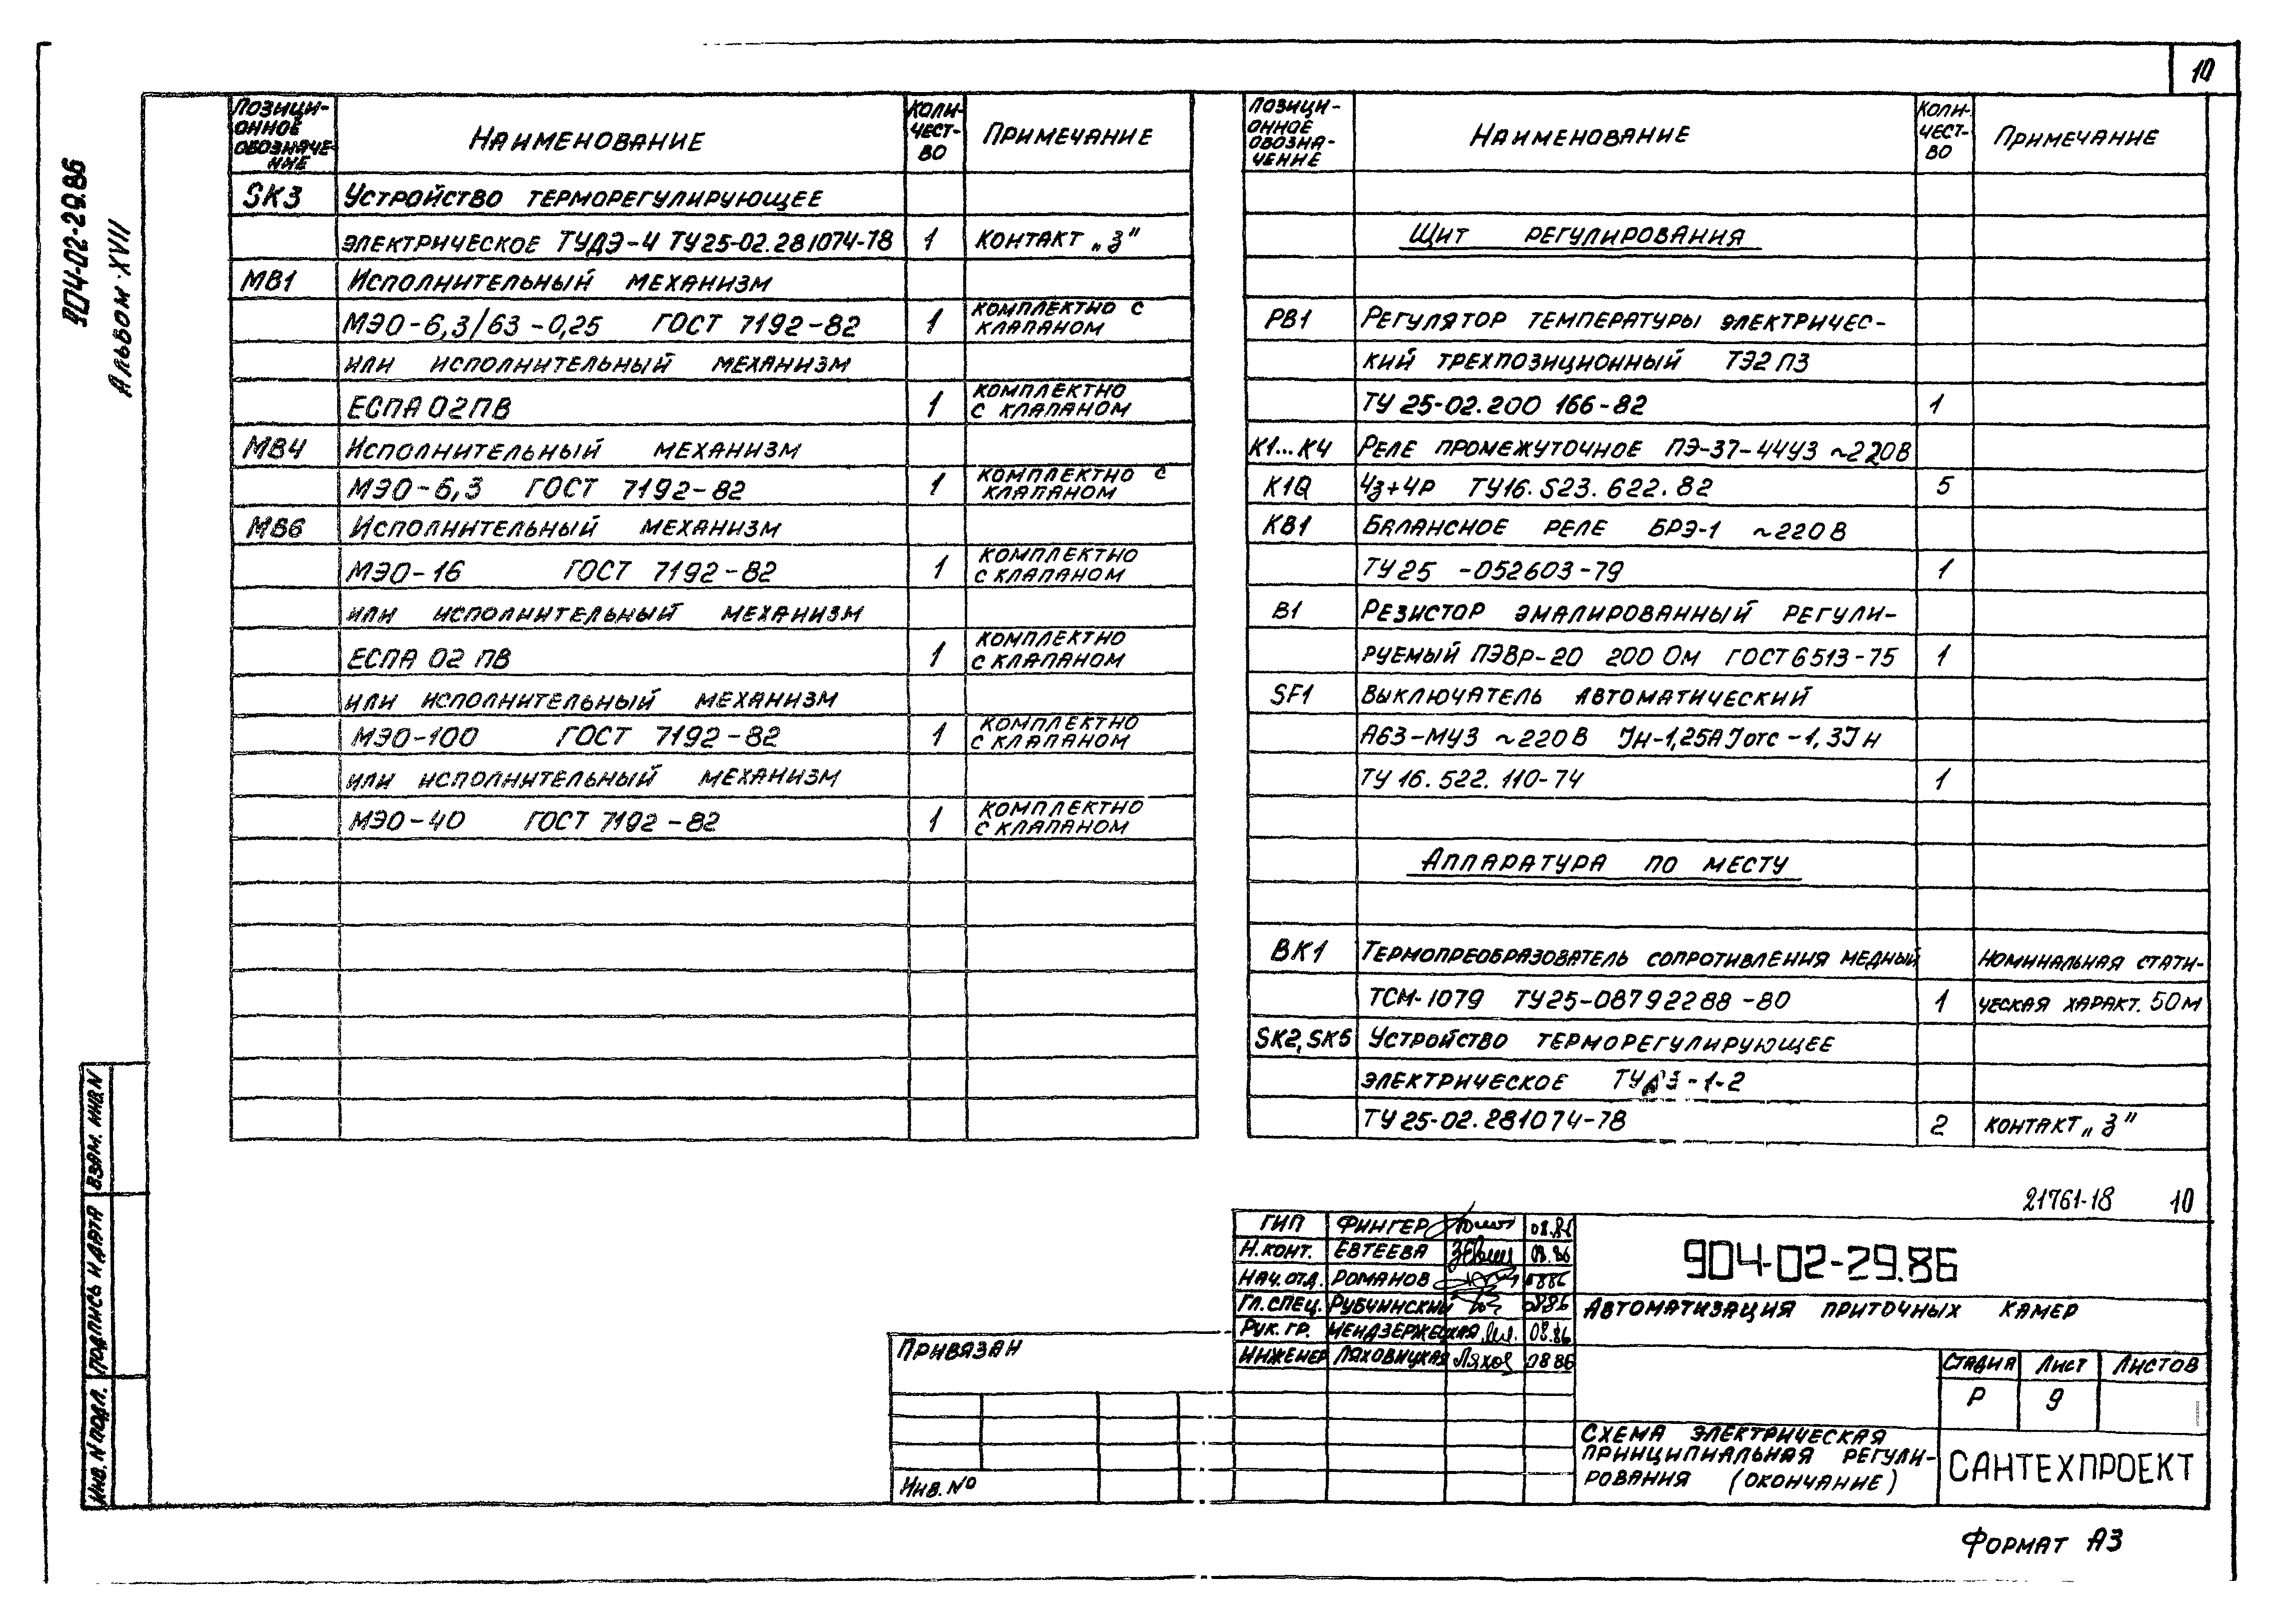 10
904-02-29.86
Альбом XVII
Позици-
онное
обозначе-
ние
Наименование
Коли-
чест-
во
Примечание
SK3 Устройство терморегулирующее
электрическое ТУДЭ-4 ТУ25-02.281074-78 1 контакт „з"
МВ1 Исполнительный механизм
МЭО-6,3/63-0,25 ГОСТ 7192-82 1 комплектно с
клапаном
или исполнительный механизм
ЕСПА 02ПВ 1 комплектно
с клапаном
МВ4 Исполнительный механизм
МЭО-6,3 ГОСТ 7192-82 1 комплектно с
клапаном
МВ6 Исполнительный механизм
МЭО-16 ГОСТ 7192-82 1 комплектно
с клапаном
или исполнительный механизм
ЕСПА 02 ПВ 1 комплектно
с клапаном
или исполнительный механизм
МЭО-100 ГОСТ 7192-82 1 комплектно
с клапаном
или исполнительный механизм
МЭО-40 ГОСТ 7192-82 1 комплектно
с клапаном
Позици-
онное
обозна-
чение
Наименование
Коли-
чест-
во
Примечание
Щит регулирования
РВ1 Регулятор температуры электричес-
кий трехпозиционный ТЭ2П3
ТУ 25-02.200 166-82 1
К1...К4 Реле промежуточное ПЭ-37-44У3 ~220В
К1Q 4з+4р ТУ16.523.622.82 5
КВ1 Балансное реле БРЭ-1 ~220В
ТУ25 -052603-79 1
В1 Резистор эмалированный регули-
руемый ПЭВР-20 200 Ом ГОСТ6513-75 1
SF1 Выключатель автоматический
А63-МУ3 ~220В Jн-1,25А Jотс-1,3Jн
ТУ 16.522.110-74 1
Аппаратура по месту
ВК1 Термопреобразователь сопротивления медный Номинальная стати-
ТСМ-1079 ТУ25-08792288-80 1 ческая характ. 50м
SK2, SK5 Устройство терморегулирующее
электрическое ТУДЭ-1-2
ТУ 25-02.281074-78 2 контакт „з"
21761-18 10
ГИП Фингер 08.86
Н.конт. Евтеева 08.86
Нач.отд. Романов 0886
Гл.спец. Рубчинский 0886
Рук.гр. Мендзержецкая 08.86
Инженер Ляховицкая Ляхов 0886
904-02-29.86
Автоматизация приточных камер
Стадия Лист Листов
Р 9
Схема электрическая
принципиальная регули-
рования (окончание)
САНТЕХПРОЕКТ
Привязан
Инв.№
Инв.N подл. Подпись и дата Взам. инв.N
Формат А3